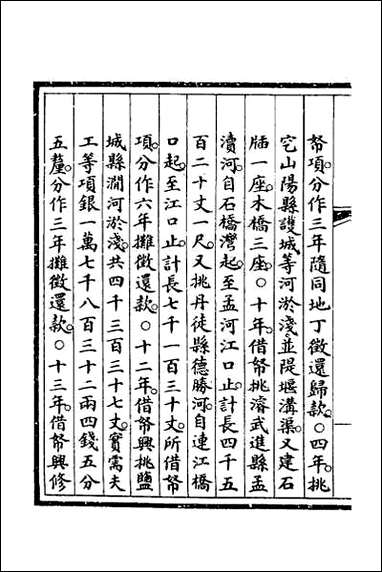 帑項。分作三年隨同地丁徵還歸款。○四年。挑
穵山陽縣護城等河淤淺。並隄堰溝渠。又建石
牐一座。木橋三座。○十年。借帑挑濬武進縣孟
瀆河。自石橋灣起。至孟河江口止。計長四千五
百二十丈一尺。又挑丹徒縣德勝河。自連江橋
口起。至江口止。計長七千一百三十丈。所借帑
項。分作六年攤徵還款。○十二年。借帑興挑鹽
城縣澗河淤淺。共四千三百三十七丈。實需夫
工等項銀一萬七千八百三十二兩四錢五分
五釐。分作三年攤徵還款。○十三年。借帑興修